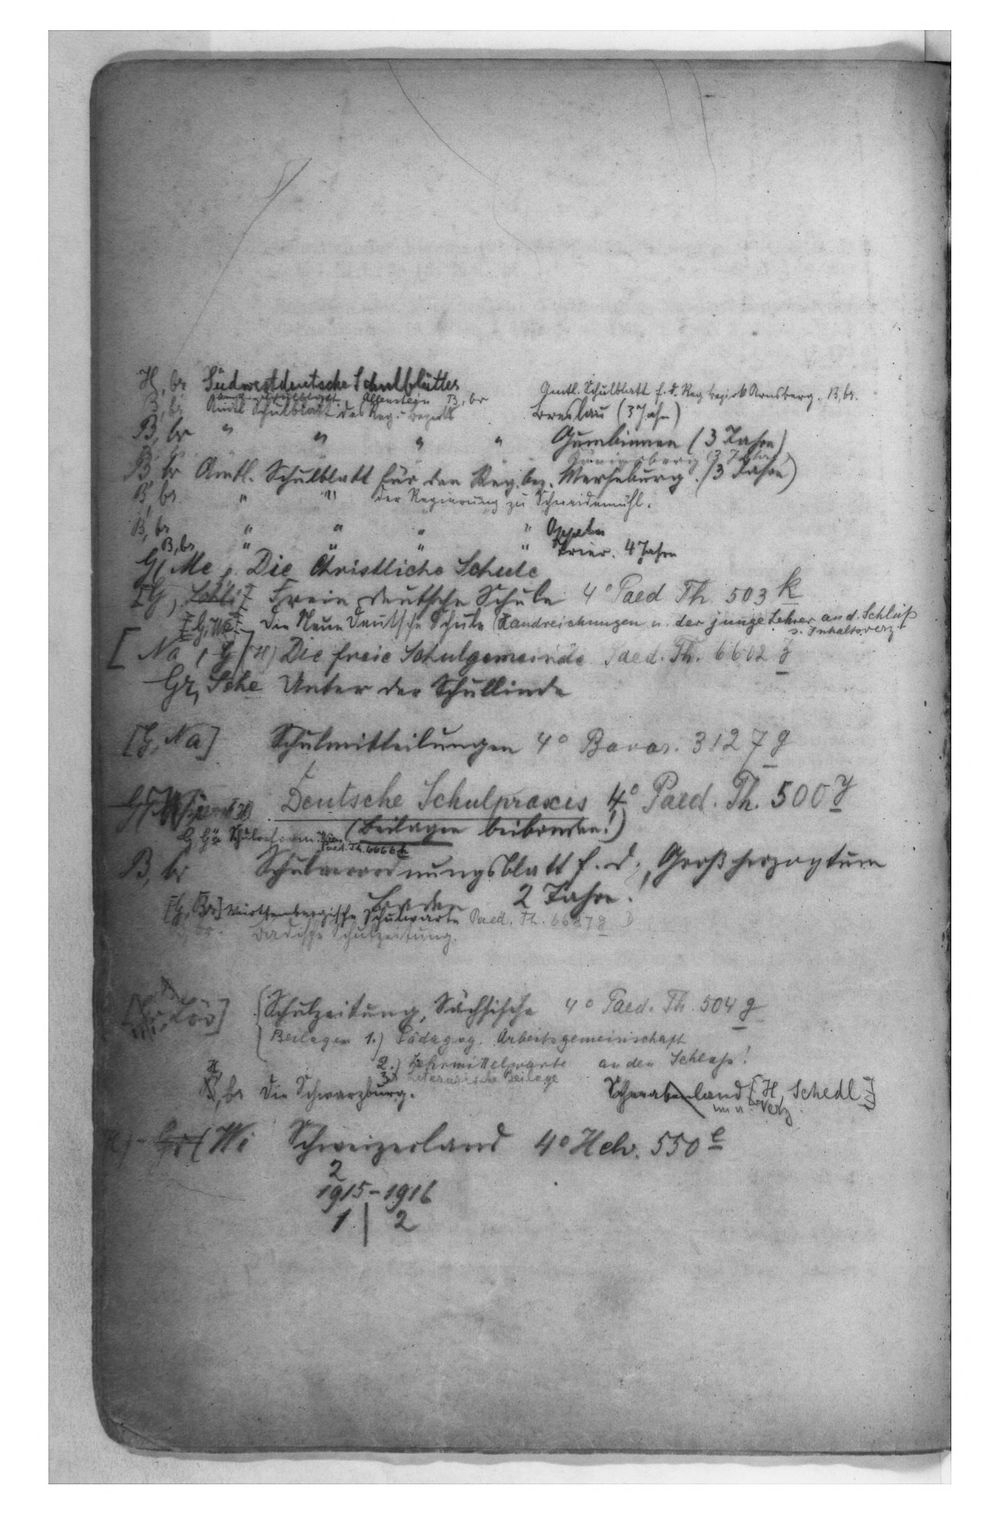 H, br Südwestdeutsche Schulblätter
Amtl. Schulblatt f. d. Reg. bezirk Arnsberg. B, br.
Allenstein B, br
B, br Amtl. Schulblatt des Reg.-Bezirks Breslau (3 Jahre)
B, br " " " " Gumbinnen (3 Jahre)
Königsberg (3 Jahre)
B br Amtl. Schulblatt für den Reg. bez. Merseburg. (3 Jahre)
B, br. " " der Regierung zu Schneidemühl.
B, br " " " " Oppeln
B, br " " " " Trier. 4 Jahre
G, Me, Die Christliche Schule
[G, Freie deutsche Schule 4° Paed Th. 503 k
[G, We] Die Neue Deutsche Schule (Handreichungen u. der junge Lehrer an d. Schluß
s. Inhaltsverz.
[Na, G, H) Die freie Schulgemeinde Paed. Th. 6602 g
Gr, Sche Unter der Schullinde
[G, Na] Schulmitteilungen 4° Bavar. 3127 g
Deutsche Schulpraxis 4° Paed. Th. 500 g
(Beilagen beibinden!)
Paed. Th. 6666
B, br Schulverordnungsblatt f. d. Großherzogtum
Baden 2 Jahre.
[G, Br] Württembergische Schulwarte Paed. Th. 6687 g
Badische Schulzeitung.
Schulzeitung, Sächsische 4° Paed. Th. 504 g
Beilagen 1.) Pädagog. Arbeitsgemeinschaft
2.) Lehrmittelwarte an den Schluß!
3.) Literarische Beilage
H
B, br Die Schwarzburg. Schwabenland [H, Schedl]
Gr (Wi Schweizerland 4° Helv. 550 e
2
1915–1916
1 | 2